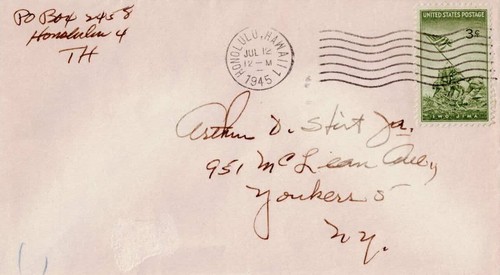 PO Box 2458
Honolulu 4
TH
HONOLULU, HAWAII 1
JUL 12
12 - M
1945
UNITED STATES POSTAGE
3¢
IWO JIMA
Arthur D. Jr.
951 McLean Ave,
Yonkers 5
N.Y.